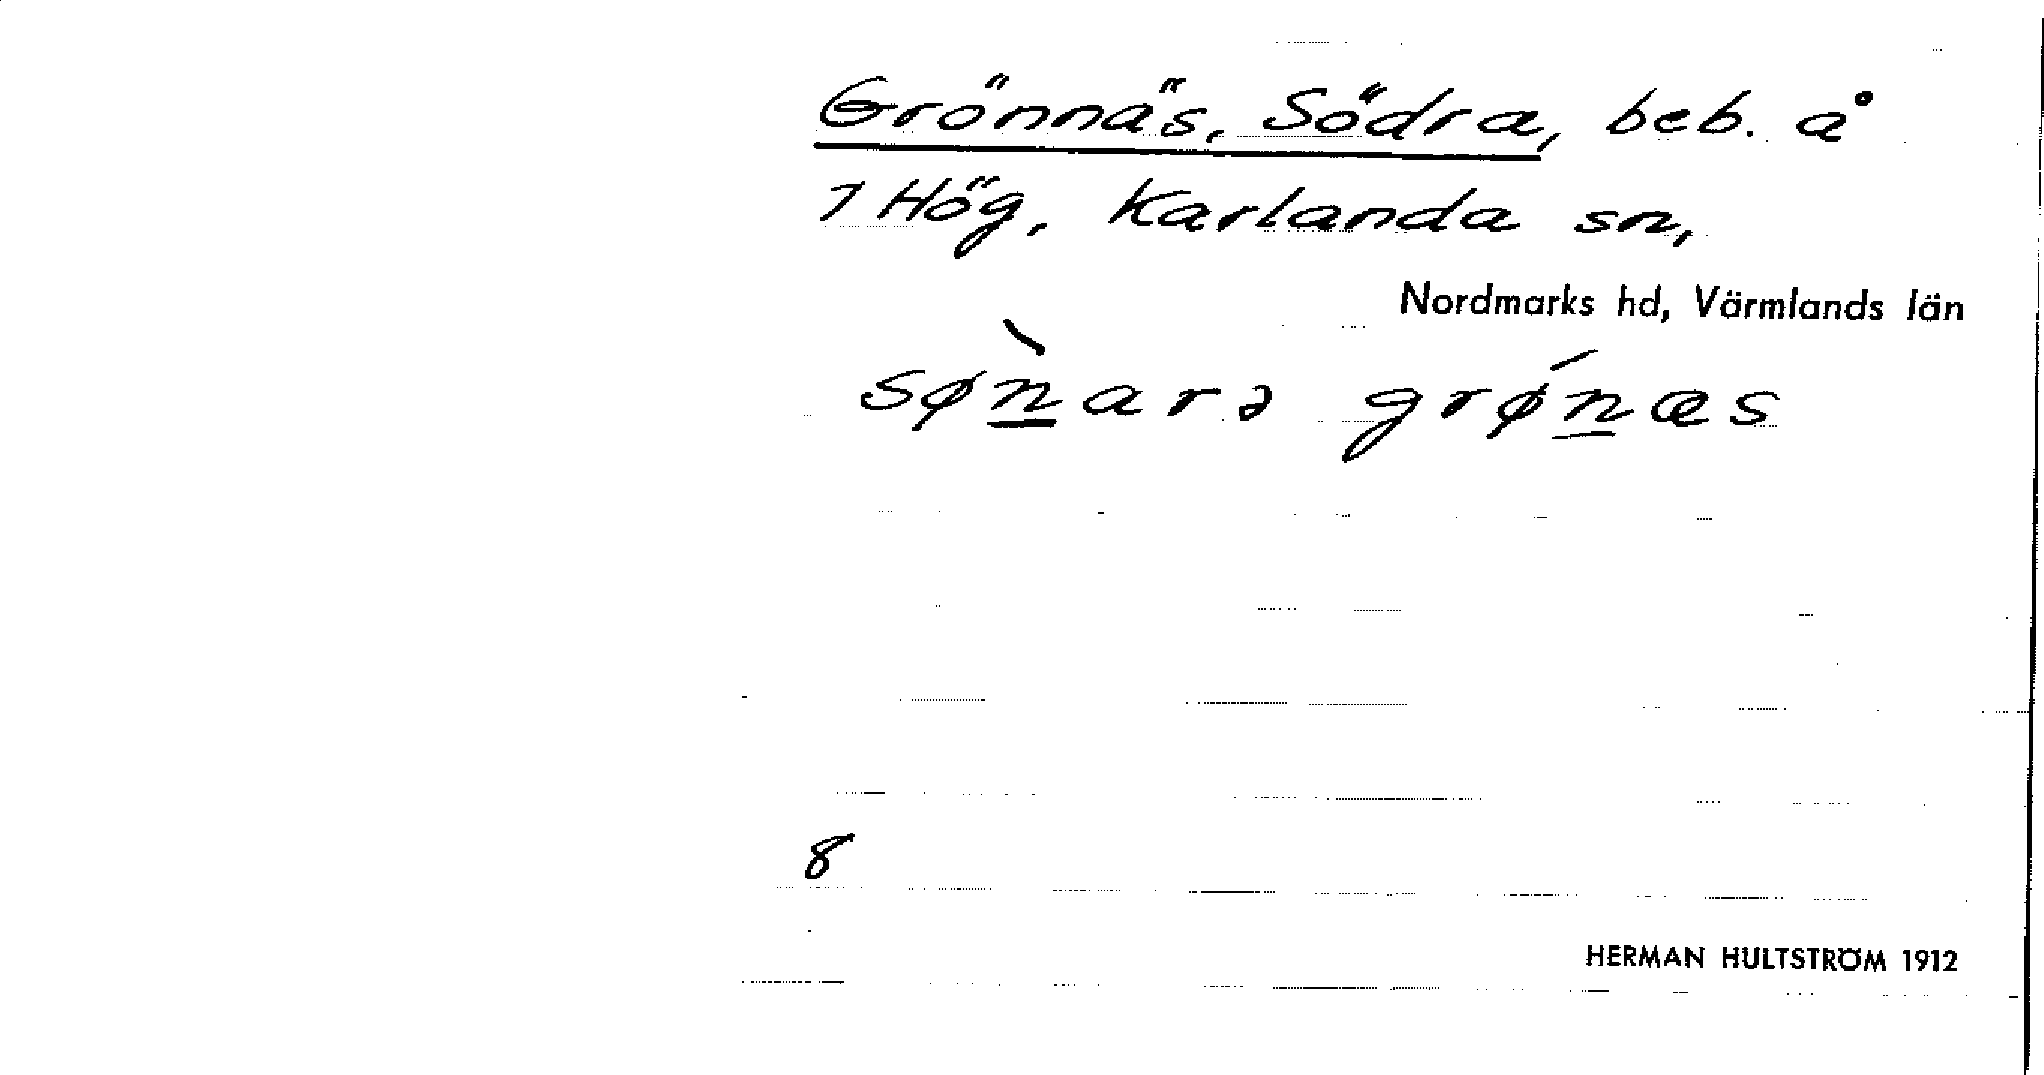 Grönnäs, Södra, beb. å
1 Hög, Karlanda sn,
Nordmarks hd, Värmlands län
sø̀n̲arə grǿn̲æs
8
HERMAN HULTSTRÖM 1912